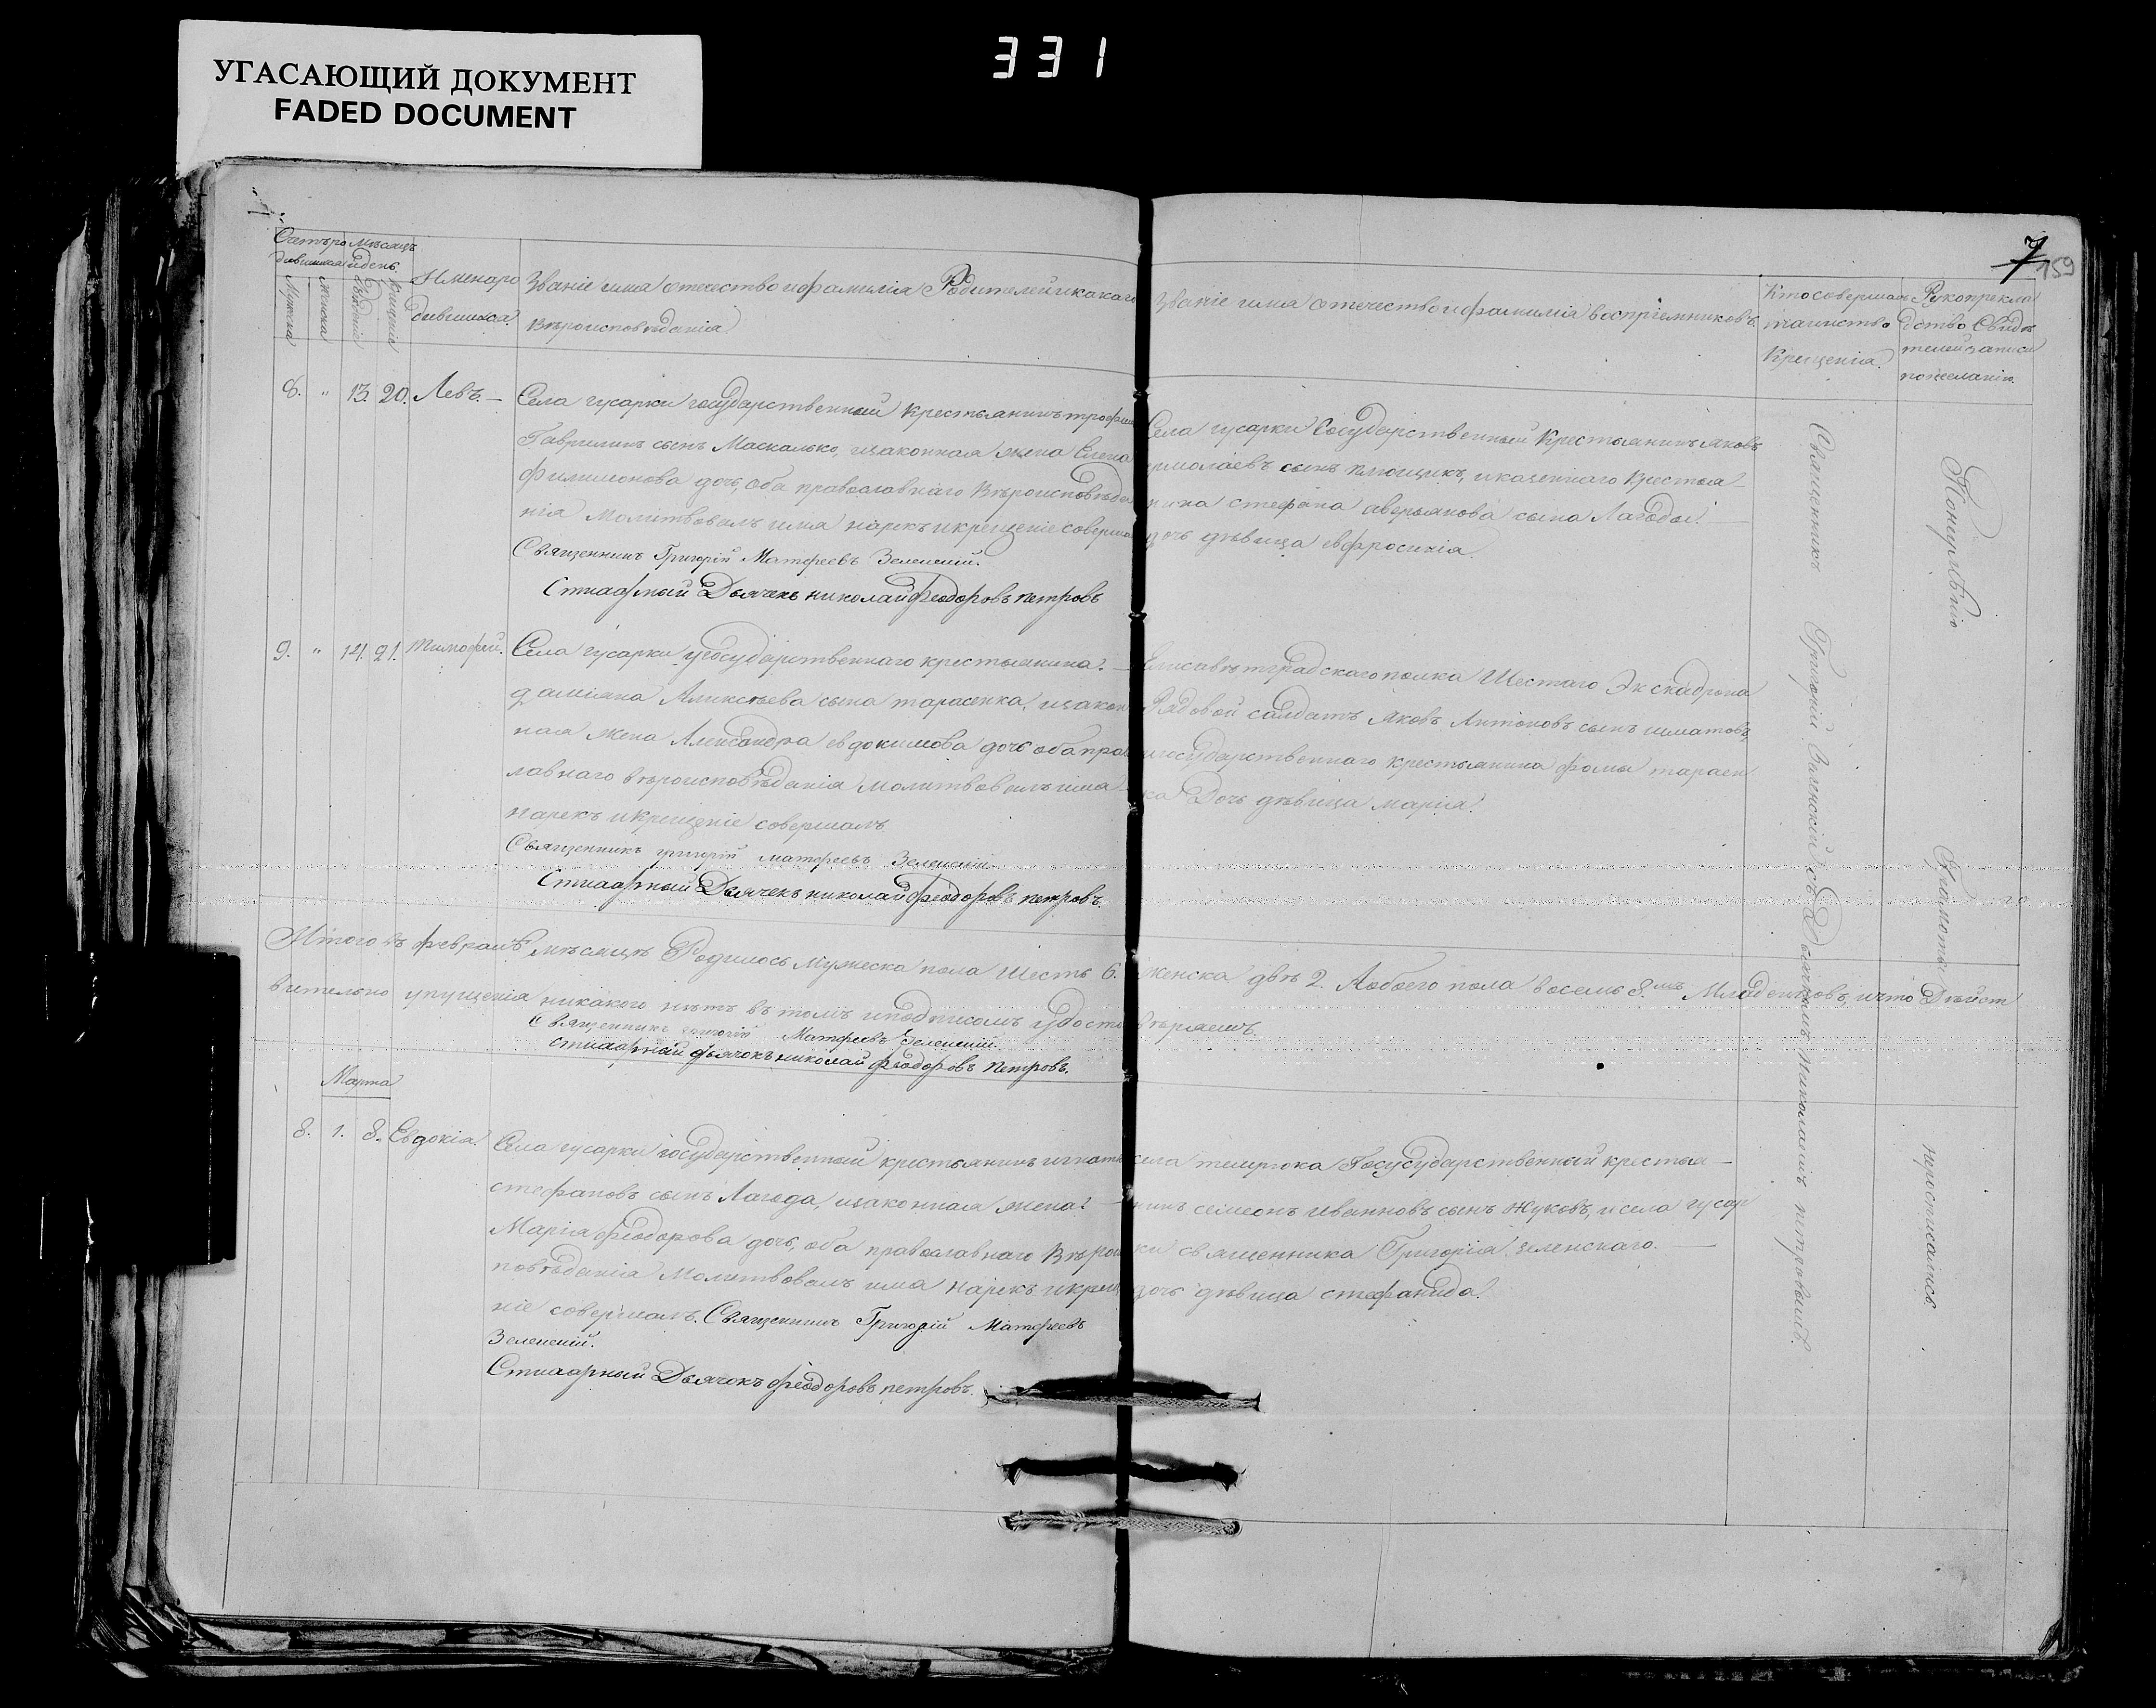 УГАСАЮЩИЙ ДОКУМЕНТ
FADED DOCUMENT
331
7
159
Счетъ ро
дившихся
Мужска
Женска
Мѣсяцъ
и день
Рожденія
Крещенія
Имена ро
дившихся.
Званіе имя отечество и фамилія Родителей и какаго
Вѣроисповѣданія
Званіе имя отечество и фамилія воспріемниковъ.
Кто совершалъ
таинство
Крещенія.
Рукоприкла
дство Свидѣ
телей записи
по желанію.
8. " 13. 20. Левъ. —
Села гусарки государственный крестьянинъ трофим
Гаврилинъ сынъ Маскалько, и законная жена Елена
Филимонова дочь, оба православнаго Вѣроисповѣда
нія Молитвовалъ имя нарекъ и крещеніе соверша
Священникъ Григорій Матфеевъ Зеленскій.
Стиаарный Дьячекъ николай Феодоровъ петровъ
Села гусарки Государственный Крестьянинъ яковъ
ермолаевъ сынъ , и казеннаго Крестья—
нина стефана аверьянова сына Лагоды.
дочь дѣвица евфросинія.
9. " 14. 21. тимофей.
Села гусарки у государственнаго крестьянина. —
даміяна Алексѣева сына тарасенка, и закон
ная жена Александра евдокимова дочь оба право
лавнаго вѣроисповѣданія молитвовалъ имя
нарекъ и крещеніе совершалъ
Священникъ григорій матфеевъ Зеленскій.
Стиаарный Дьячекъ николай Феодоровъ петровъ.
Елисаветградскаго полка Шестаго Эскадрона
Рядовой салдатъ яковъ Антоновъ сынъ ,
и государственнаго крестьянина фомы тарасен
ка Дочь дѣвица марія.
Итого въ февралѣ мѣсяцѣ Родилось Мужеска пола Шесть 6. женска двѣ 2. А обоего пола восемь 8.мь Младенцовъ, и что Дѣйст
вительно упущенія никакого нѣтъ въ томъ и подписомъ удосто вѣряемъ.
Священникъ григорій Матфеевъ Зеленскій.
стиаарный дьячокъ николай феодоровъ петровъ.
Марта
8. 1. 8. Евдокія.
Села гусарки государственный крестьянинъ игнатъ
стефановъ сынъ Лагода, и законная жена. —
Марія Феодорова дочь, оба православнаго Вѣрои
повѣданія Молитвовалъ имя нарекъ и креще
ніе совершалъ. Священникъ Григорій Матфеевъ
Зеленскій.
Стиаарный Дьячокъ феодоровъ петровъ.
села темрюка Госусударственный крестья—
нинъ сімеонъ ивановъ сынъ Жуковъ, и села гусар
ки священника Григорія зеленскаго. —
дочь дѣвица стефанида.
Священникъ Григорій Зеленскій съ Дьячкомъ николаемъ петровымъ.
По неумѣнію
Грамоты
неросписались